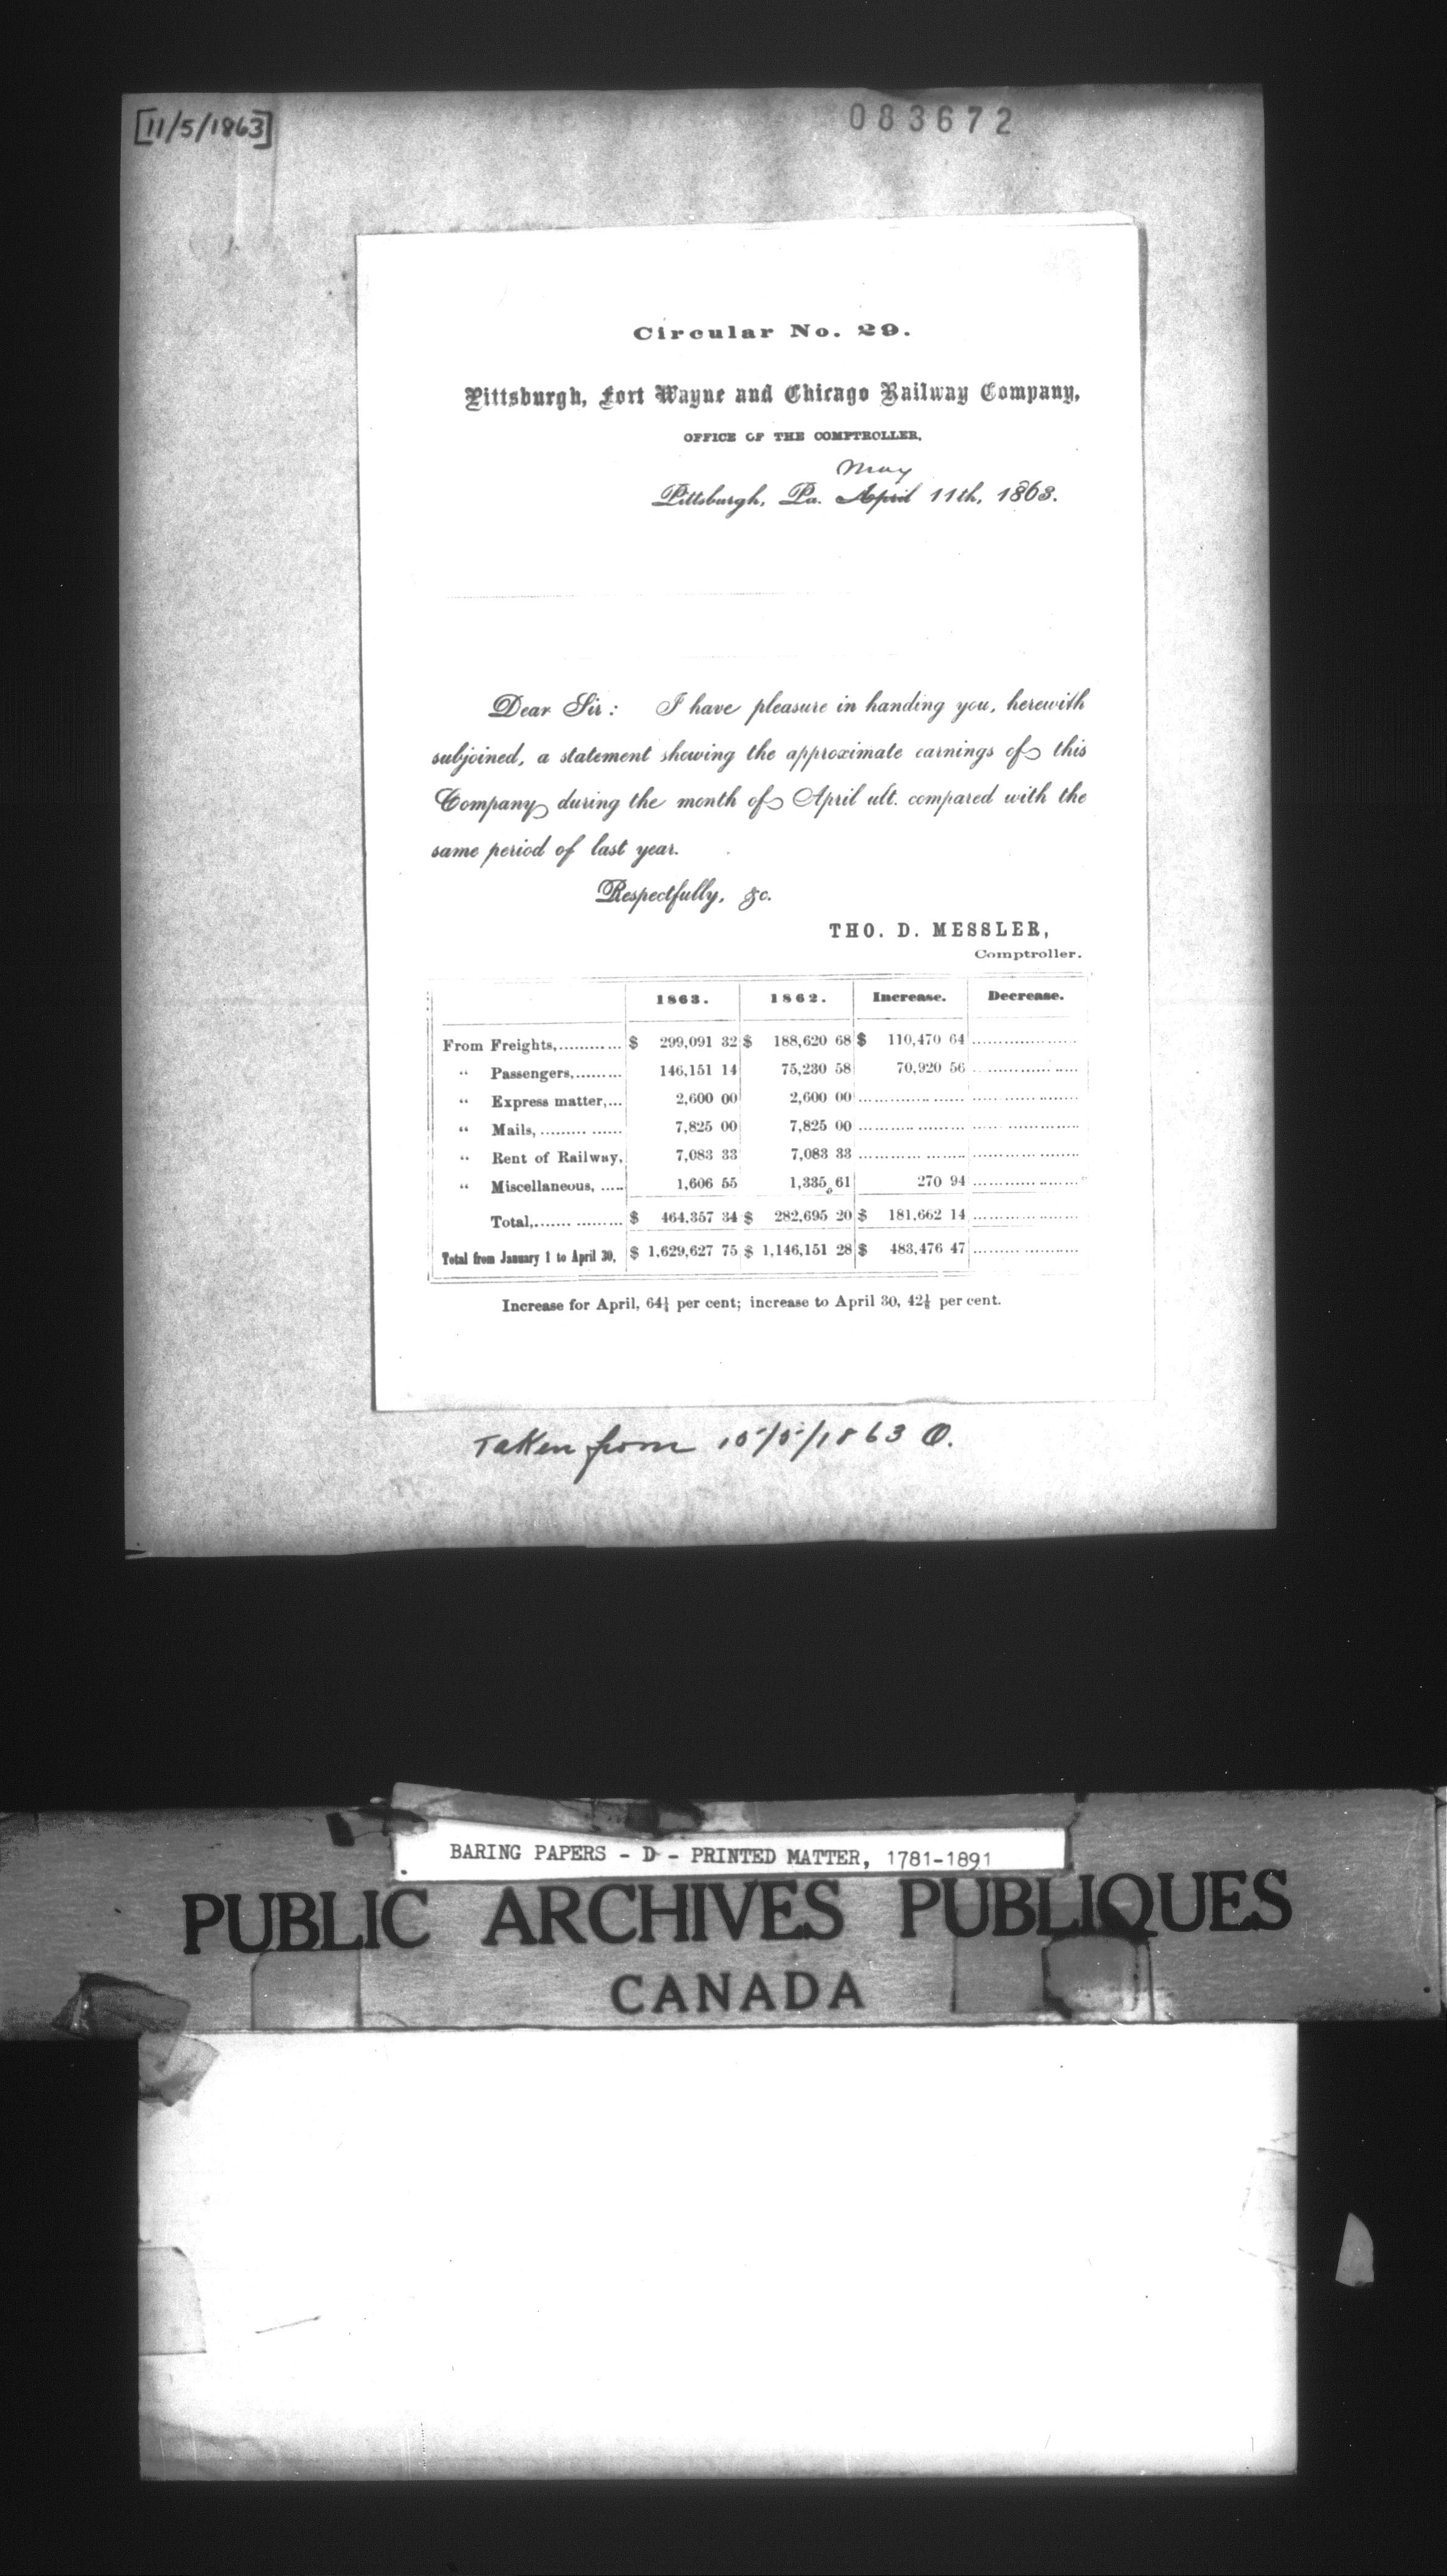 [11/5/1863]
083672
Circular No. 29.
Pittsburgh, Fort Wayne and Chicago Railway Company,
OFFICE OF THE COMPTROLLER,
May
Pittsburgh, Pa. April 11th, 1863.
Dear Sir: I have pleasure in handing you, herewith
subjoined, a statement showing the approximate earnings of this
Company during the month of April ult. compared with the
same period of last year.
Respectfully, &c.
THO. D. MESSLER,
Comptroller.
1863. 1862. Increase. Decrease.
From Freights,............ $ 299,091 32 $ 188,620 68 $ 110,470 64 ....................
“ Passengers,......... 146,151 14 75,230 58 70,920 56 ....................
“ Express matter,... 2,600 00 2,600 00 .................... ....................
“ Mails, ......... ...... 7,825 00 7,825 00 .................... ....................
“ Rent of Railway, 7,083 33 7,083 33 .................... ....................
“ Miscellaneous, ..... 1,606 55 1,335 61 270 94 ....................
Total,....... ......... $ 464,357 34 $ 282,695 20 $ 181,662 14 ....................
Total from January 1 to April 30, $ 1,629,627 75 $ 1,146,151 28 $ 483,476 47 ....................
Increase for April, 64¼ per cent; increase to April 30, 42⅛ per cent.
Taken from 15/5/1863 O.
BARING PAPERS - D - PRINTED MATTER, 1781-1891
PUBLIC ARCHIVES PUBLIQUES
CANADA